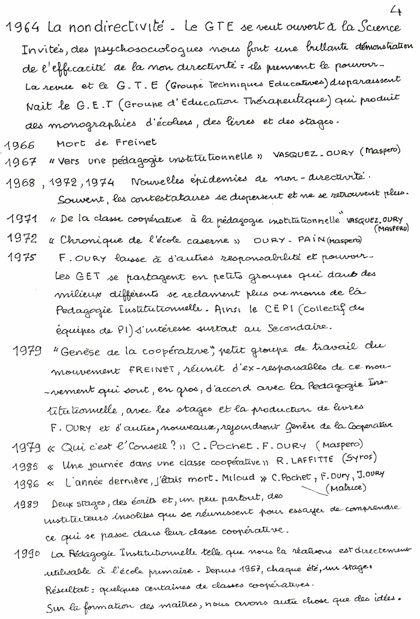 4
1964 La non directivité - Le GTE se veut ouvert à la Science
Invités, des psychosociologues nous font une brillante démonstration
de l'efficacité de la non directivité : ils prennent le pouvoir -
La revue et le G.T.E (Groupe Techniques Educatives) disparaissent
Naît le G.E.T (Groupe d'Education Thérapeutique) qui produit
des monographies d'écoliers, des livres et des stages.
1966 Mort de Freinet
1967 "Vers une pédagogie institutionnelle" VASQUEZ-OURY (Maspero)
1968, 1972, 1974 Nouvelles épidémies de non-directivité.
Souvent, les contestataires se dispersent et ne se retrouvent plus.
1971 "De la classe coopérative à la pédagogie institutionnelle" VASQUEZ, OURY
(MASPERO)
1972 "Chronique de l'école caserne" OURY-PAIN (Maspero)
1975 F. OURY laisse à d'autres responsabilité et pouvoir -
Les GET se partagent en petits groupes qui dans des
milieux différents se réclament plus ou moins de la
Pédagogie Institutionnelle. Ainsi le CEPI (Collectif des
équipes de PI) s'intéresse surtout au Secondaire.
1979 "Genèse de la coopérative", petit groupe de travail du
mouvement FREINET, réunit d'ex-responsables de ce mou-
-vement qui sont, en gros, d'accord avec la Pédagogie Ins-
titutionnelle, avec les stages et la production de livres
F. OURY et d'autres, nouveaux, rejoindront Genèse de la Coopérative
1979 "Qui c'est l'Conseil ?" C. Pochet. F. OURY (Maspero)
1985 "Une journée dans une classe coopérative" R. LAFFITTE (Syros)
1986 "L'année dernière, j'étais mort. Miloud" C. Pochet, F. OURY, J. OURY
(Matrice)
1989 Deux stages, des écrits et, un peu partout, des
instituteurs insolites qui se réunissent pour essayer de comprendre
ce qui se passe dans leur classe coopérative.
1990 La Pédagogie Institutionnelle telle que nous la réalisons est directement
utilisable à l'école primaire - Depuis 1967, chaque été, un stage.
Résultat : quelques centaines de classes coopératives.
Sur la formation des maîtres, nous avons autre chose que des idées.